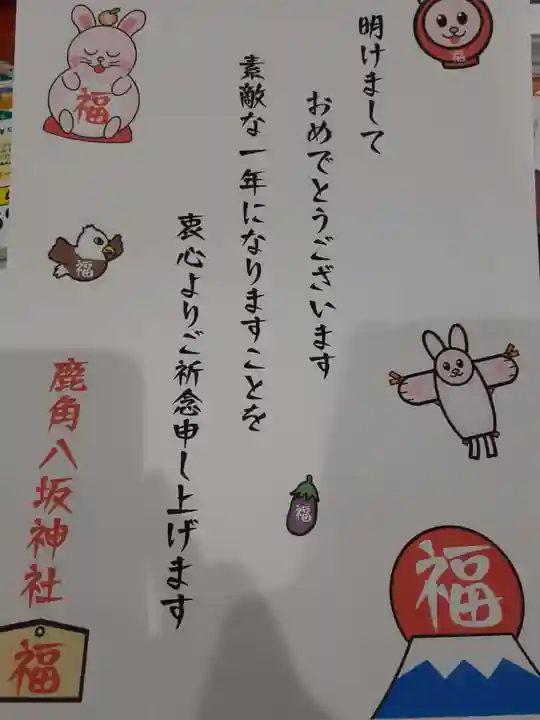 明けまして
おめでとうございます
素敵な一年になりますことを
衷心よりご祈念申し上げます
鹿角八坂神社
福
福
福
福
福
福